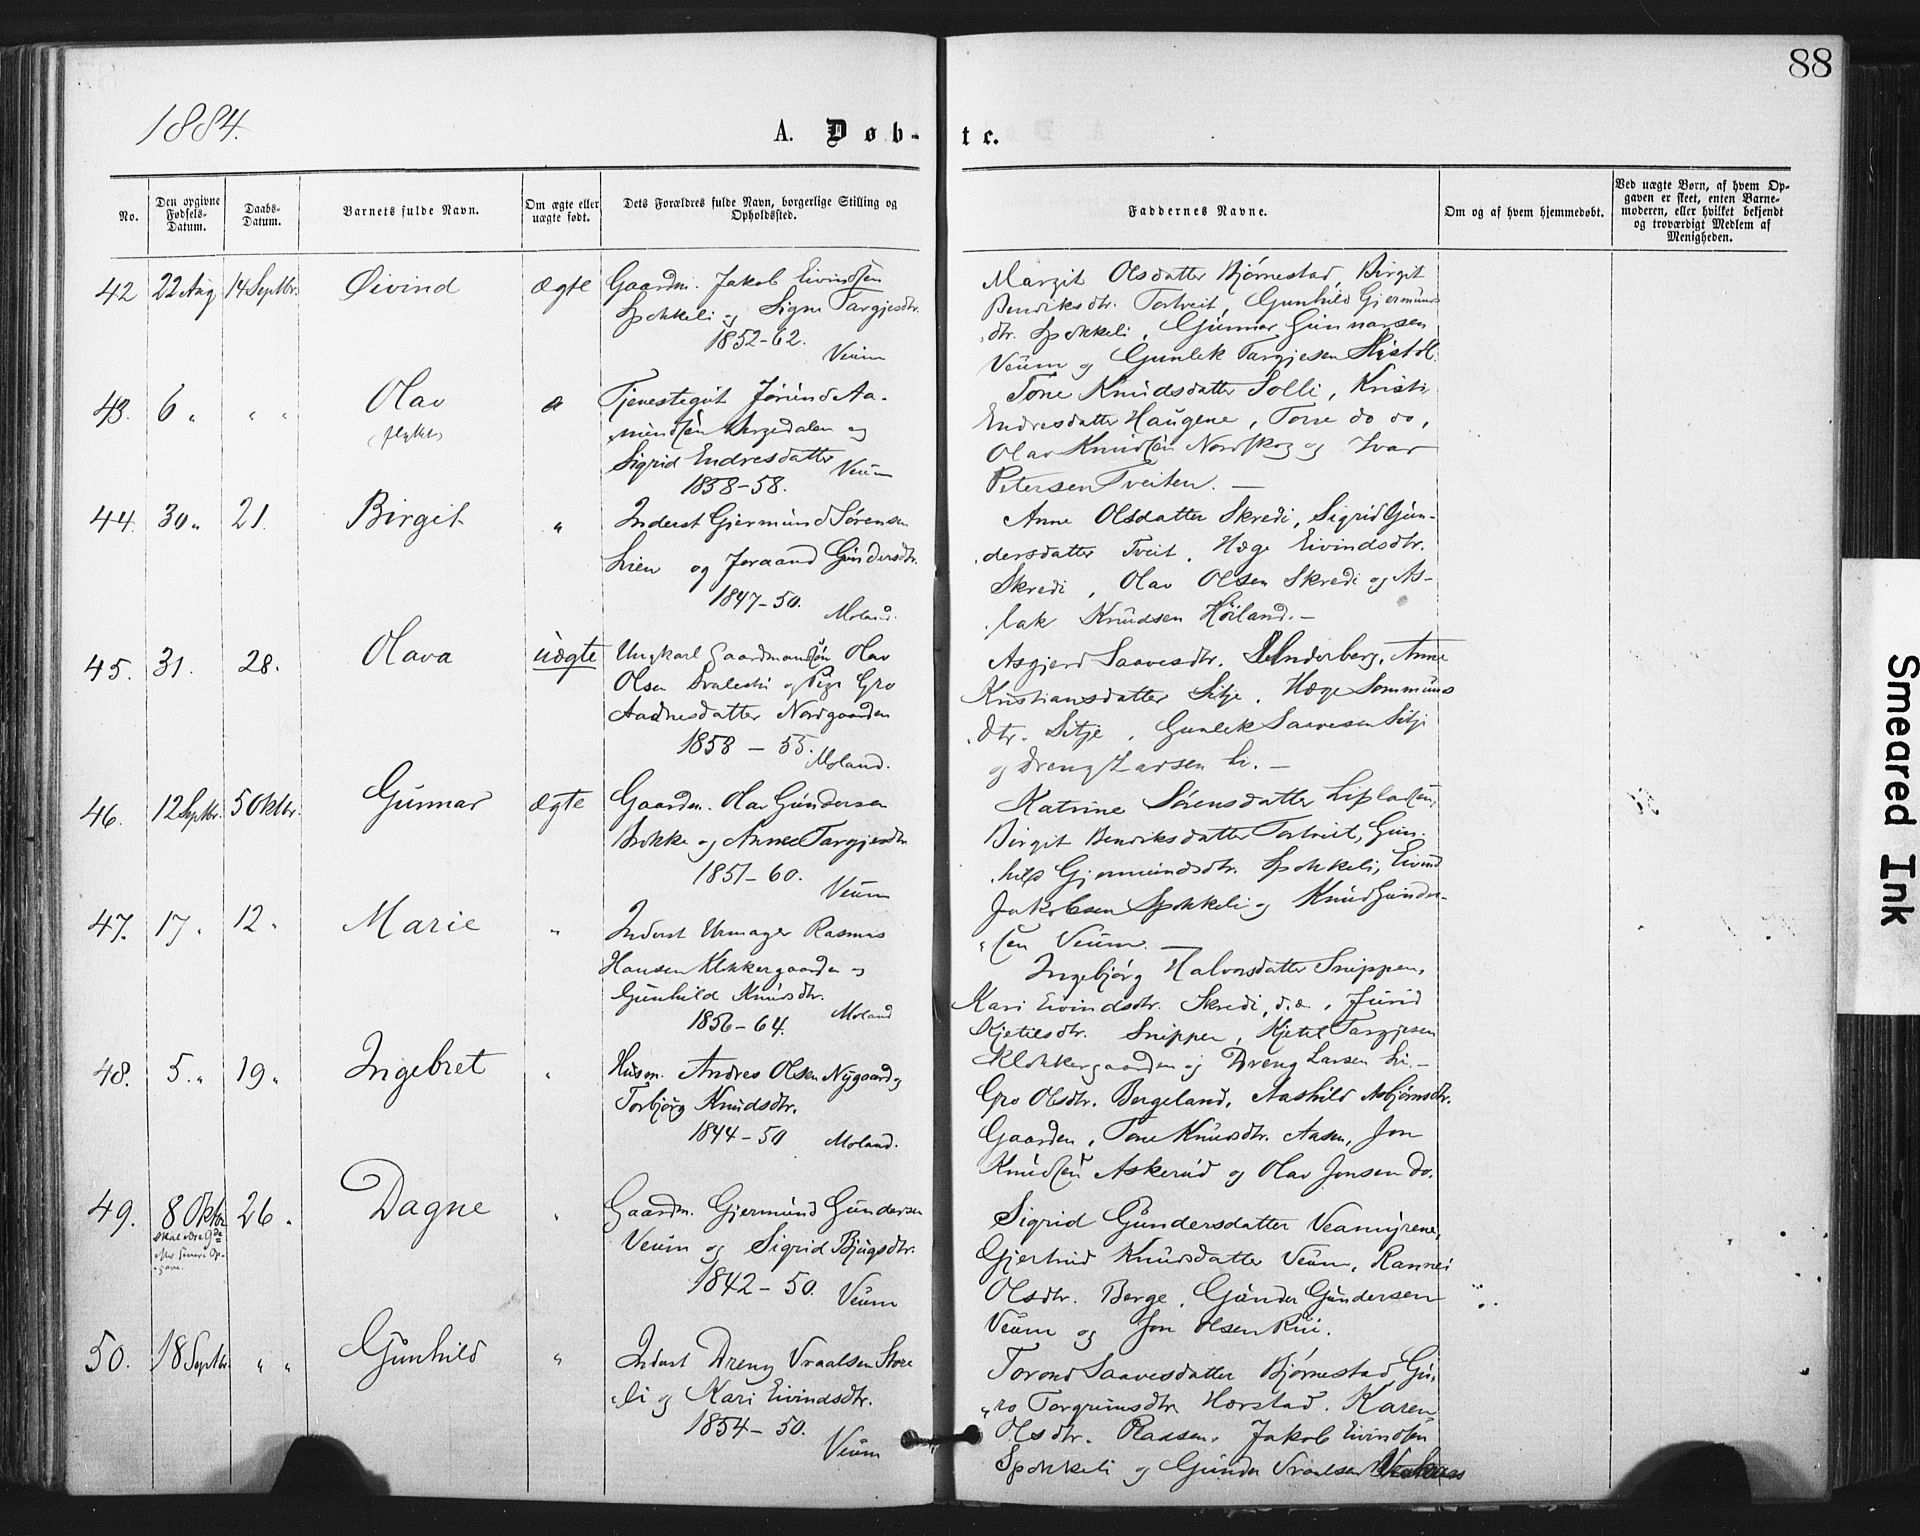 88
1884.
A. Døb-
te.
No.
Den opgivne Fødsels-Datum.
Daabs-Datum.
Barnets fulde Navn.
Om ægte eller uægte født.
Dets Forældres fulde Navn, borgerlige Stilling og Opholdssted.
Faddernes Navne.
Om og af hvem hjemmedøbt.
Ved uægte Børn, af hvem Op-
gaven er skeet, enten Barne-
moderen, eller hvilket bekjendt
og troværdigt Medlem af
Menigheden.
42 22 Aug 14 Septbr. Øivind ægte Gaardm. Jakob Eivindsen
Spokkeli og Signe Targjesdtr.
1852-62.
Veum
Margit Olsdatter Bjørnestad, Birgit
Bendiksdtr. Tortveit, Gunhild Gjermunds
dtr. Spokkeli, Gunnar Gunnarsen
Veum og Gunlek Targjesen
43. 6 " " " Olav Tjenestegut Jørund Aa-
mundsen og
Sigrid Endresdatter Veum
1858-58.
Tone Knudsdatter Solli, Kristi
Endresdatter Haugene, Tone do do,
Olav Knudsen Nordskog og Ivar
Petersen Tveiten. —
44. 30 " 21. Birgit " Inderst Gjermund Sørensen
Lien og Joraand Gundersdtr.
1847-50.
Moland.
Anne Olsdatter Skredi, Sigrid Gun-
dersdatter Tveit, Hæge Eivindsdtr.
Skredi, Olav Olsen Skredi og As-
lak Knudsen Høiland. —
45. 31. 28. Olava uægte Ungkarl Gaardmandsøn Olav
Olsen og Pige Gro
Aadnesdatter Nordgaarden
1858 - 55.
Moland.
Asgjerd Saavesdtr. Anne
Kristiansdatter Sitje, Hæge Sommunds
dtr. Sitje, Gunlek Saavesen Sitje
og Dreng Larsen Li. —
46. 12 Septbr. 5 Oktbr. Gunnar ægte Gaardm. Olav Gundersen
Brokke og Anne Targjesdtr
1851-60.
Veum
Katrine Sørensdatter
Birgit Bendiksdatter Tortveit, Gun-
hild Gjermundsdtr. Spokkeli, Eivind
Jakobsen Spokkeli og Knud Gunder-
sen Veum. —
47. 17 " 12 " Marie " Inderst Urmager Rasmus
Hansen Klokkergaarden og
Gunhild Knudsdtr.
1856-64.
Moland
Ingebjørg Halvorsdatter Snippen,
Kari Eivindsdtr. Skredi, Jurid
Kjetilsdtr. Snippen, Kjetil Targjesen
Klokkergaarden og Dreng Larsen Li. —
48. 5. " 19 " Ingebret " Husm. Andres Olsen Nygaard og
Torbjørg Knudsdtr.
1844-50 Moland.
Gro Olsdtr. Bergeland, Aashild Asbjørnsdtr.
Gaarden, Tone Knudsdtr. Aasen, Jon
Knudsen Askerud og Olav Jonsen do.
49. 8 Oktbr 26 " Dagne " Gaardm. Gjermund Gundersen
Veum og Sigrid Bjugsdtr.
1842-50.
Veum
Sigrid Gundersdatter Veamyrene,
Gjertrud Knudsdatter Veum, Rannei
Olsdtr. Berge, Gunder Gundersen
Veum og Jon Olsen Rui.
50. 18 Septbr. " " Gunhild " Inderst Dreng Vraalsen Store
li og Kari Eivindsdtr.
1854-50.
Veum
Torond Saavesdatter Bjørnestad, Gu-
ro Torgrimsdtr Harstad, Karen
Olsdtr. Raasen, Jakob Eivindsen
Spokkeli og Gunder Vraalsen
Smeared Ink